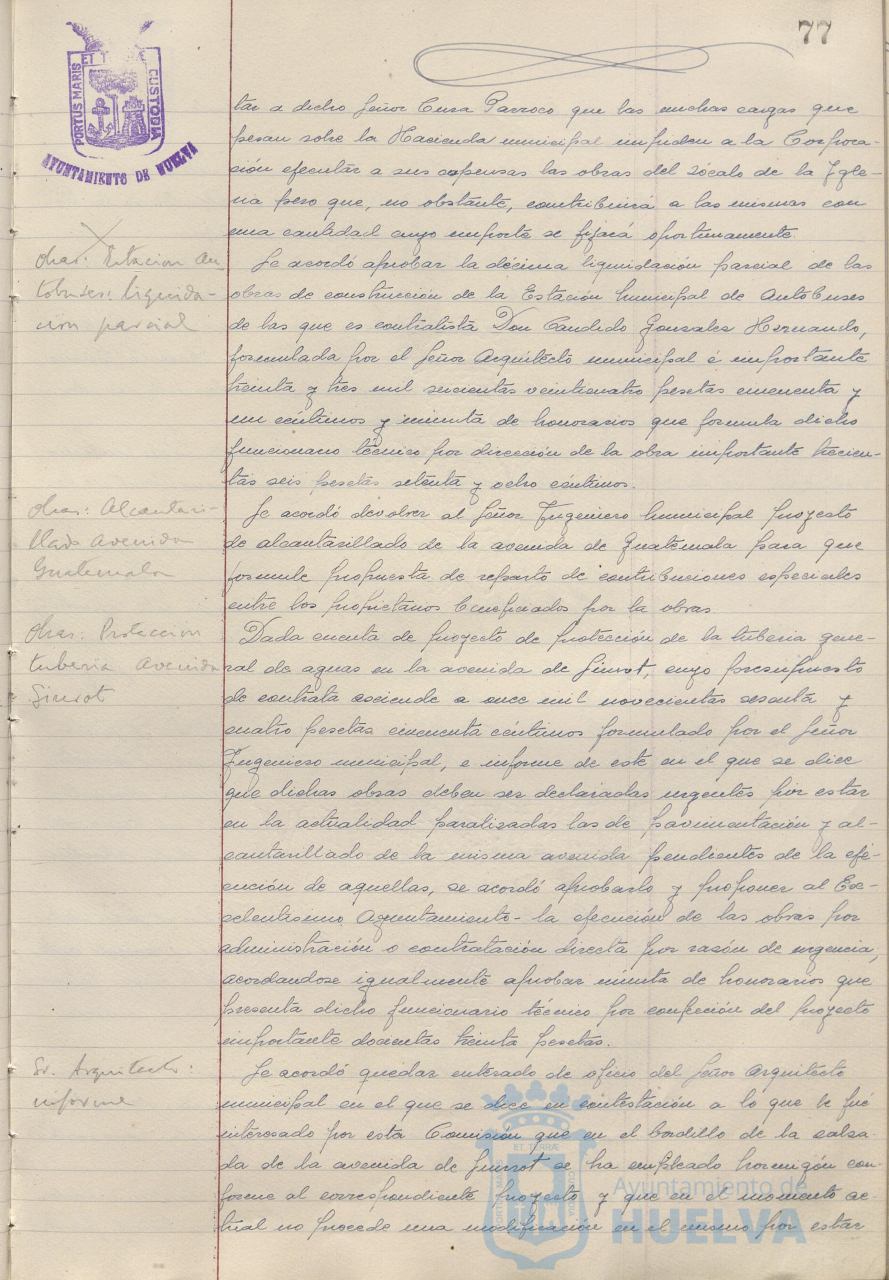 77
PORTUS MARIS ET T CUSTODIA
AYUNTAMIENTO DE HUELVA
tar a dicho Señor Cura Parroco que las muchas cargas que
pesan sobre la Hacienda municipal impiden a la Corpora-
ción ejecutar a sus expensas las obras del zócalo de la Igle-
sia pero que, no obstante, contribuirá a las mismas con
una cantidad cuyo importe se fijará oportunamente.
Obras: Estacion Au-
tobuses: liquida-
cion parcial
Se acordó aprobar la décima liquidación parcial de las
obras de construcción de la Estación municipal de Autobuses
de las que es contratista Don Candido Gonzales Hernando,
formulada por el Señor Arquitecto municipal é importante
treinta y tres mil seicientas veinticuatro pesetas cincuenta y
un céntimos y minuta de honorarios que formula dicho
funcionario técnico por dirección de la obra importante trecien-
tas seis pesetas setenta y ocho céntimos.
Obras: Alcantari-
llado Avenida
Guatemala
Se acordó devolver al Señor Ingeniero municipal proyecto
de alcantarillado de la avenida de Guatemala para que
formule propuesta de reparto de contribuciones especiales
entre los propietarios beneficiados por la obras.
Obras: Proteccion
tuberia Avenida
Dada cuenta de proyecto de protección de la tuberia gene-
ral de aguas en la avenida de cuyo presupuesto
de contrata asciende a once mil novecientas sesenta y
cuatro pesetas cincuenta céntimos formulado por el Señor
Ingeniero municipal, e informe de este en el que se dice
que dichas obras deben ser declaradas urgentes por estar
en la actualidad paralizadas las de pavimentación y al-
cantarillado de la misma avenida pendientes de la eje-
cución de aquellas, se acordó aprobarlo y proponer al Ex-
celentisimo Ayuntamiento la ejecución de las obras por
administración o contratación directa por razón de urgencia,
acordandose igualmente aprobar minuta de honorarios que
presenta dicho funcionario técnico por confeción del proyecto
importante docientas treinta pesetas.
Sr. Arquitecto:
informe
Se acordó quedar enterado de oficio del Señor Arquitecto
municipal en el que se dice en contestación a lo que le fué
interesado por esta Comisión que en el bordillo de la calsa-
da de la avenida de se ha empleado hormigón con-
forme al correspondiente proyecto y que en el momento ac-
tual no procede una modificación en el mismo por estar
Ayuntamiento de
HUELVA